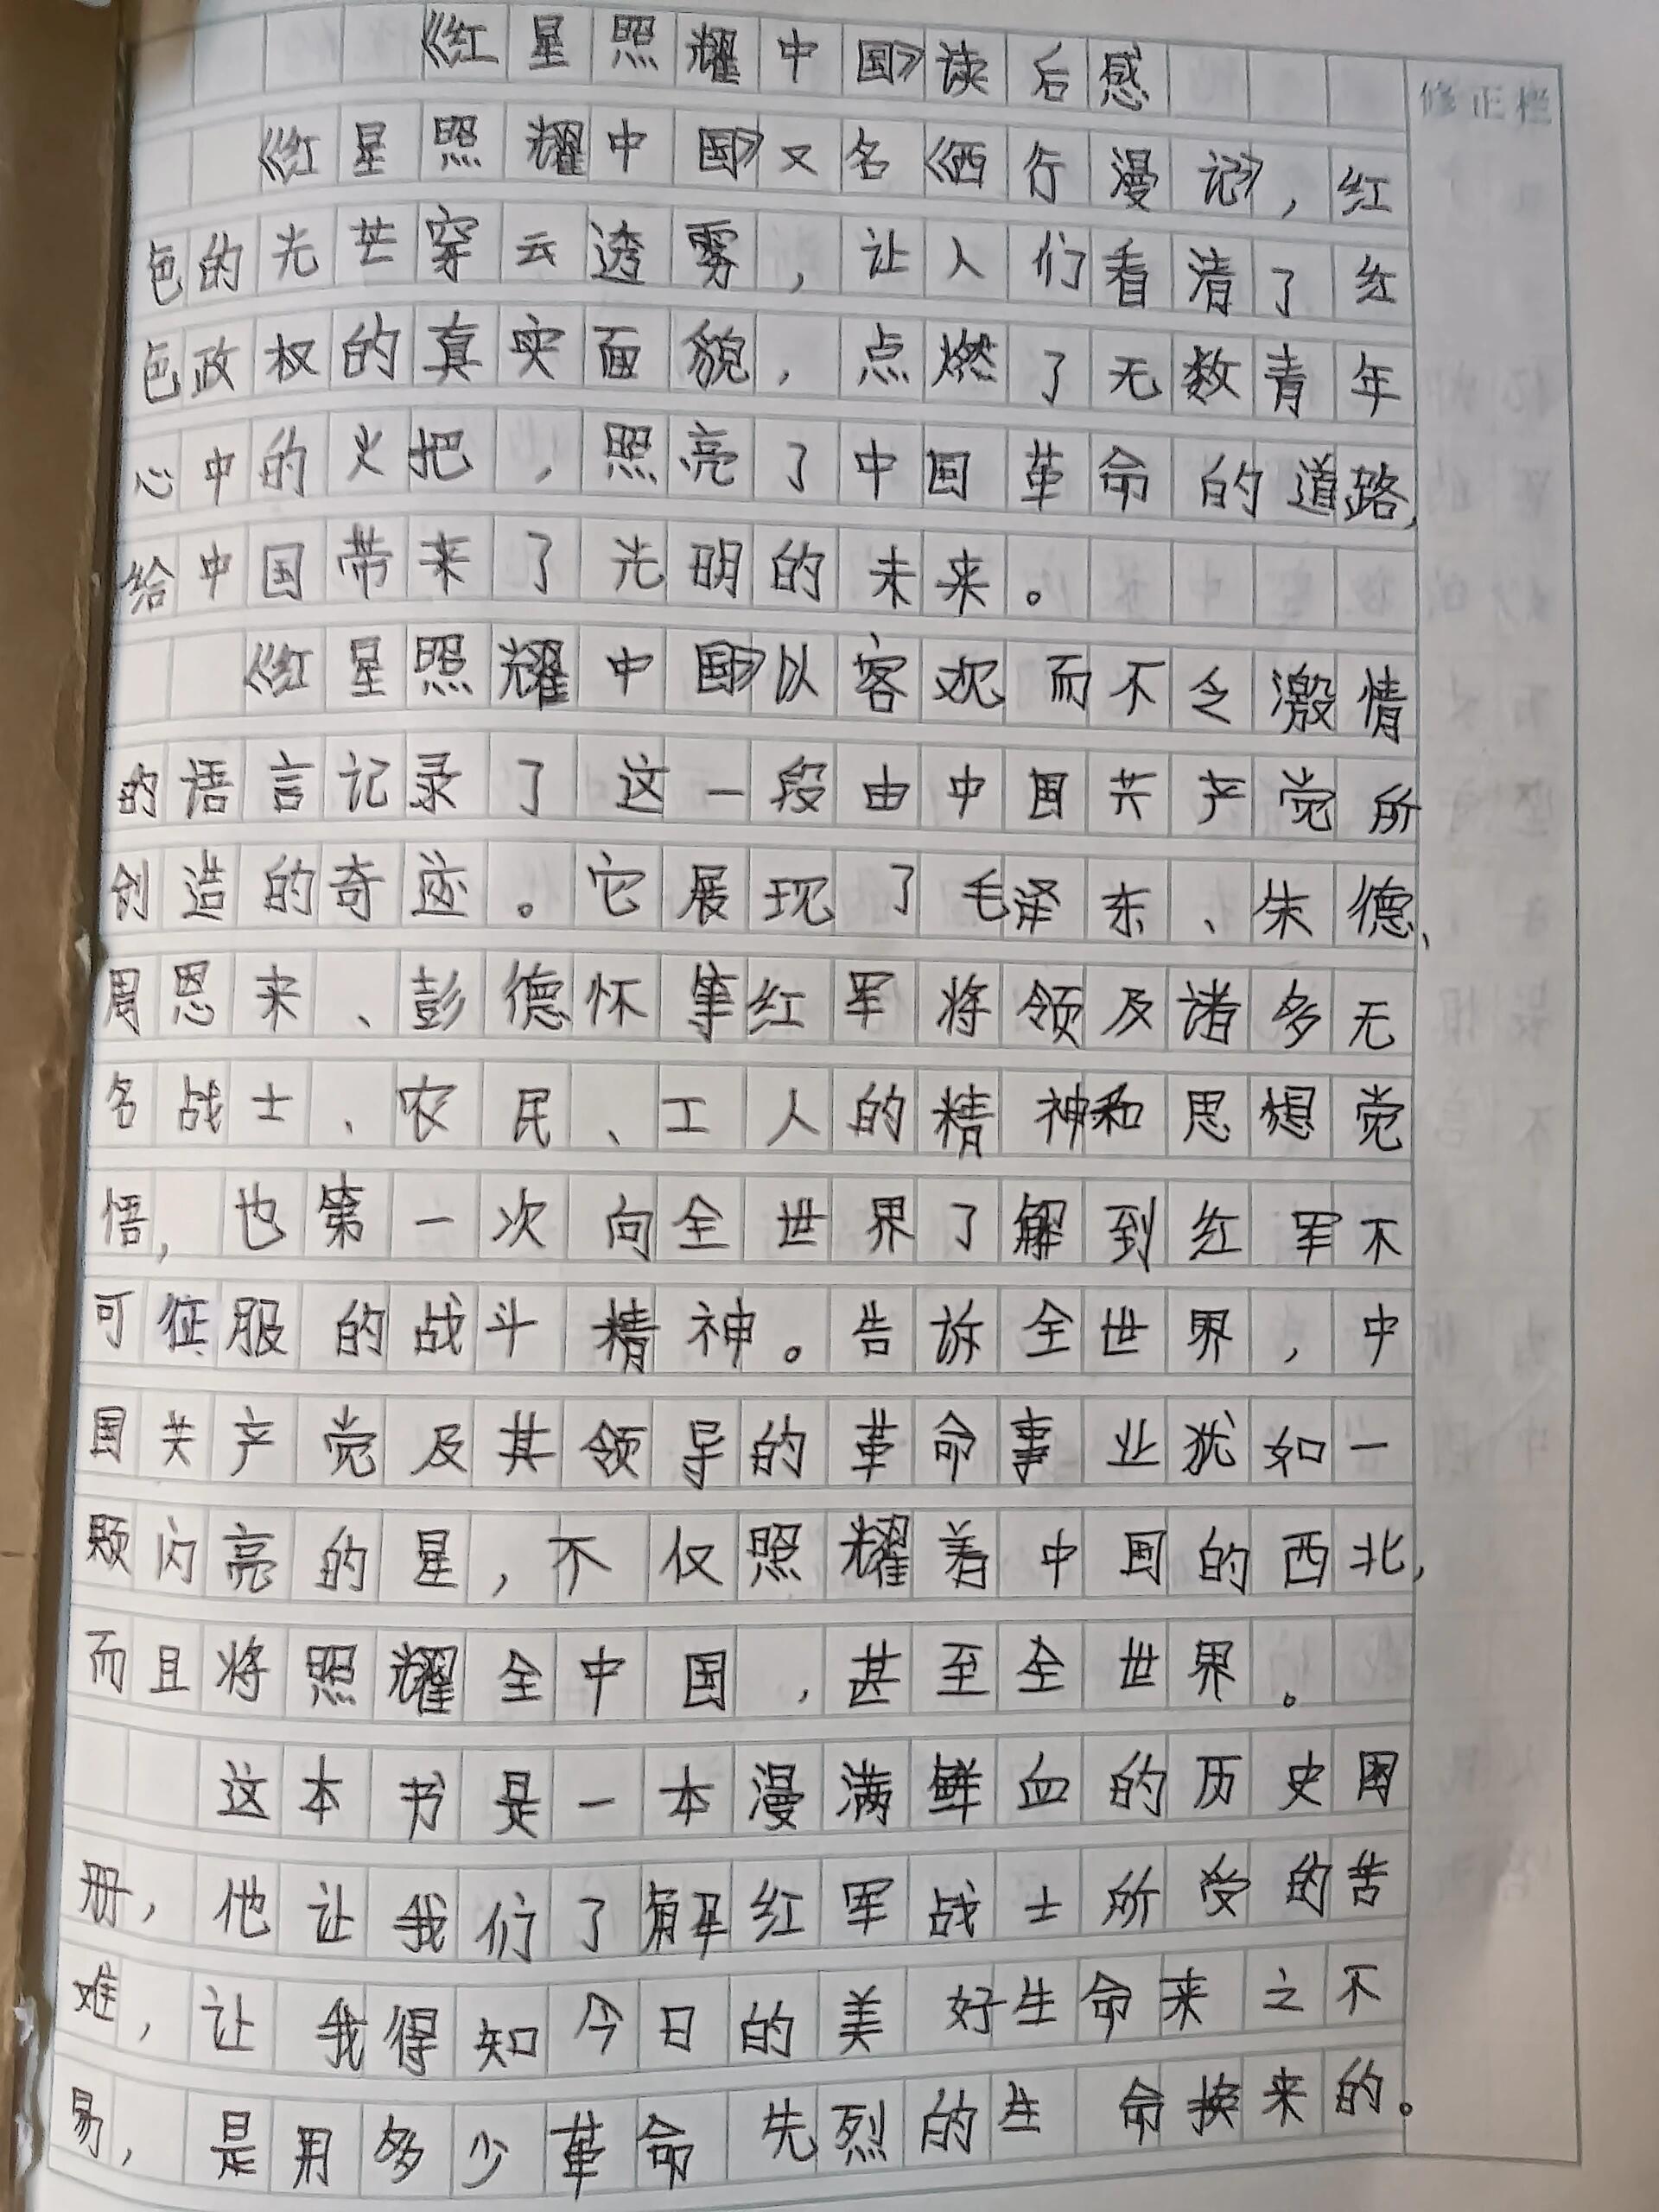 《红星照耀中国》读后感
修正栏
《红星照耀中国》又名《西行漫记》,红
色的光芒穿云透雾,让人们看清了红
色政权的真实面貌,点燃了无数青年
心中的火把,照亮了中国革命的道路,
给中国带来了光明的未来。
《红星照耀中国》以客观而不乏激情
的语言记录了这一段由中国共产党所
创造的奇迹。它展现了毛泽东、朱德、
周恩来、彭德怀等红军将领及诸多无
名战士、农民、工人的精神和思想觉
悟,也第一次向全世界了解到红军不
可征服的战斗精神。告诉全世界,中
国共产党及其领导的革命事业犹如一
颗闪亮的星,不仅照耀着中国的西北,
而且将照耀全中国,甚至全世界。
这本书是一本漫满鲜血的历史图
册,他让我们了解红军战士所受的苦
难,让我得知今日的美好生命来之不
易,是用多少革命先烈的生命换来的。